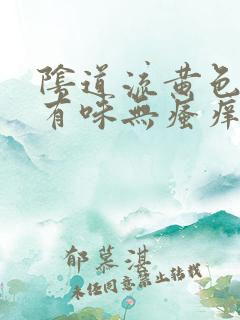 陰道流黄色
有味無瘙痒
郁慕湛
未经同意禁止转载